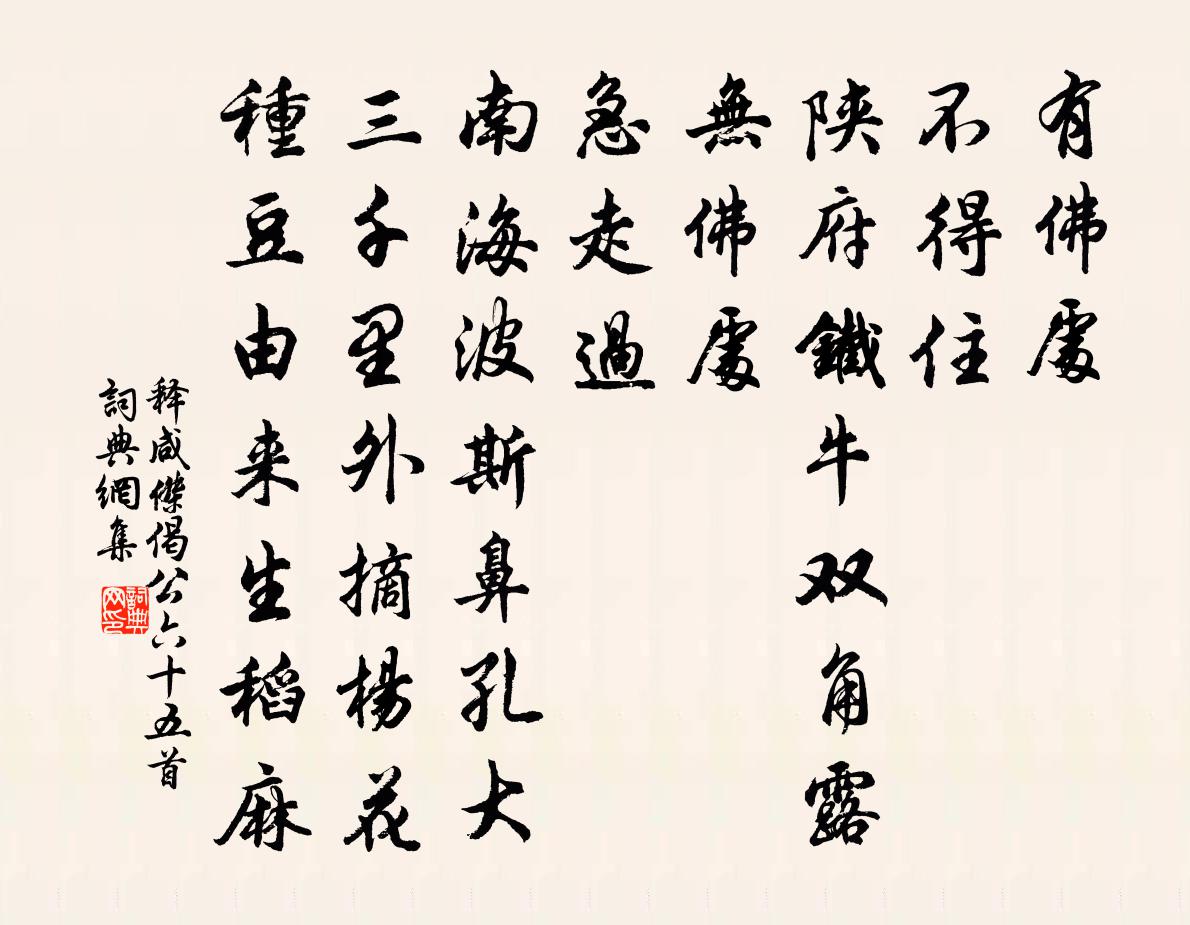 有佛處
不得住
陝府鐵牛双角露
無佛處
急走過
南海波斯鼻孔大
三千里外摘楊花
種豆由来生稻麻
释咸傑偈公六十五首
詞典網集
詞典网印